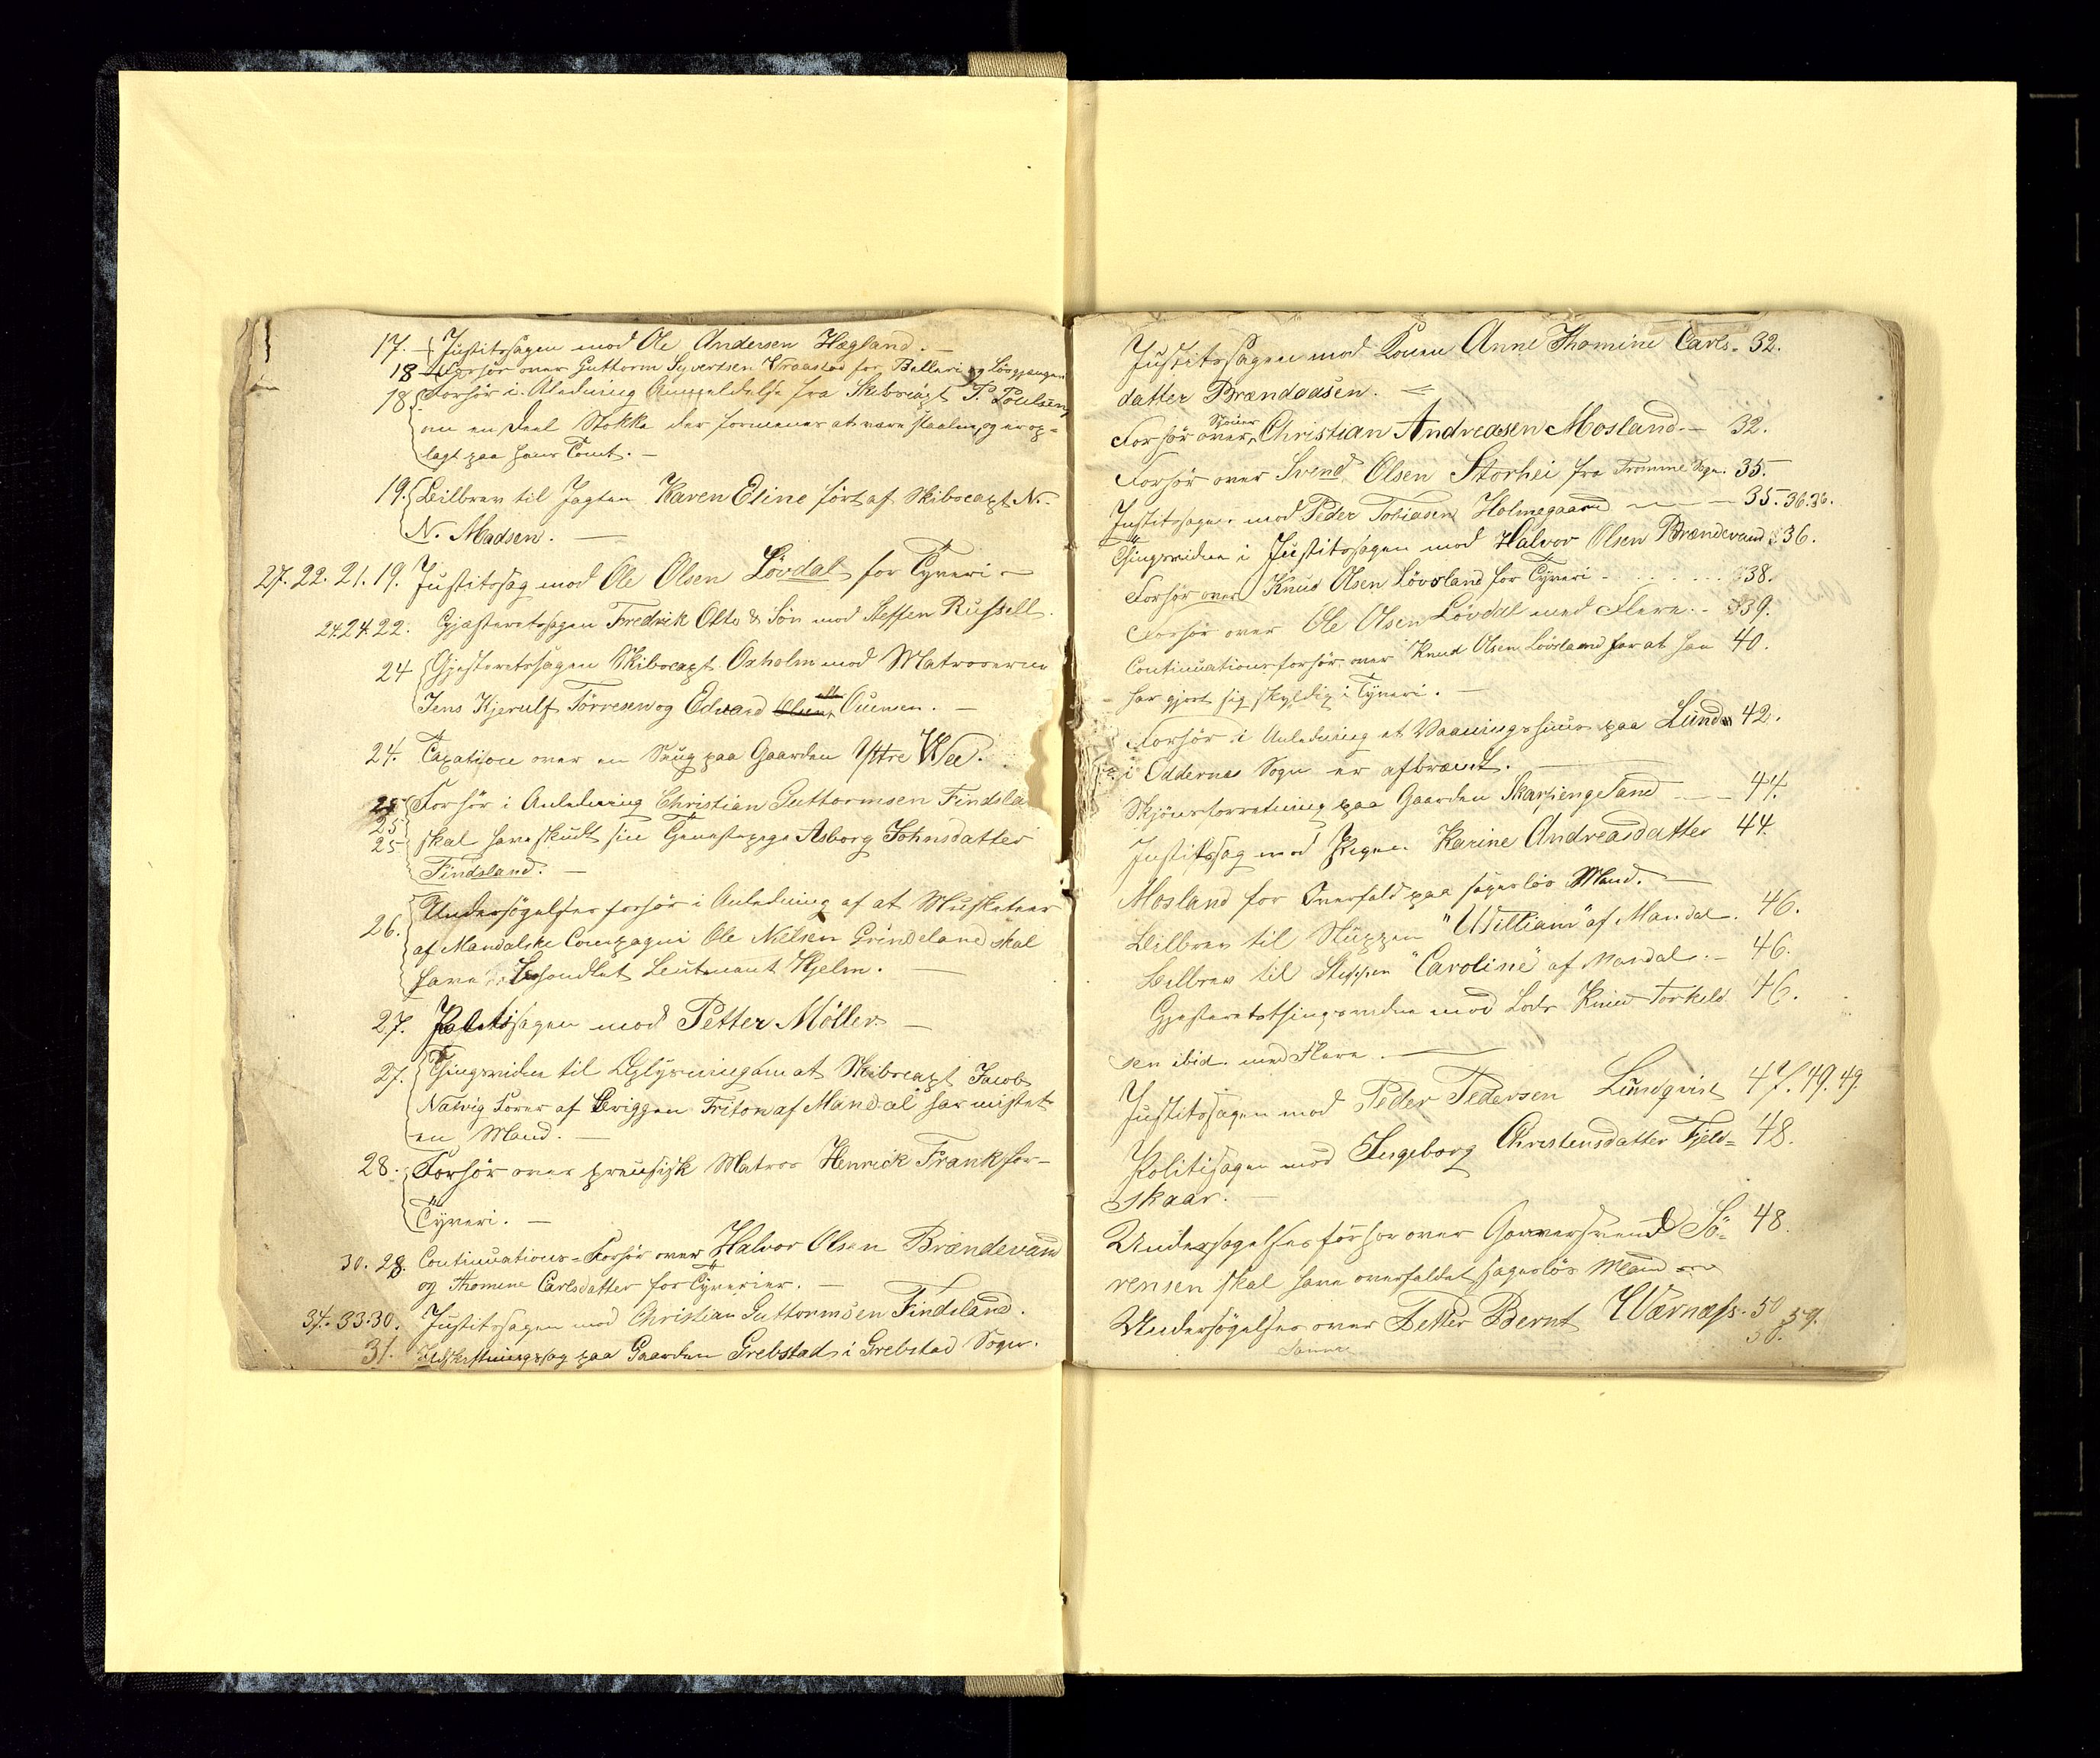 17. Justitssagen mod Ole Andersen Hægland. —
18 Forhör over Guttorm Syvertsen Wraastad for Betleri og Lösgjængeri
18 Forhör i Anledning Anmeldelse fra Skibscapt P. Poulsen
om en Deel Stokke der formenes at være staalne, og er op-
lagt paa hans Tomt. —
19. Beilbrev til Jagten Karen Eline fört af Skibscapt N.
N. Madsen. —
27. 22. 21. 19. Justitssag mod Ole Olsen Lövdal for Tyveri —
24. 24. 22. Gjæsteretssagen Fredrik Otto & Sön mod Steffen Russell.
24 Gjesteretssagen Skibscapt. Oxholm mod Matroserne
Jens Kjerulf Törresen og Edvard Ouensen. —
24. Taxation over en Snug paa Gaarden Yttre Wee.
25 Forhör i Anledning Christian Guttormsen Findsla
25
25 skal have skudt sin Tjenestepige Asborg Johnsdatter
Findsland. —
Undersögelsesforhör i Anledning af at Musketeer
26. af Mandalske Compagni Ole Nielsen Grindeland skal
have mishandlet Leutnant Hjelm. —
27. Politisagen mod Petter Möller —
27. Thingsvidne til Oplysning om at Skibscapt Jacob
Natvig Förer af Briggen Triton af Mandal har mistet
en Mand. —
28. Forhör over preussisk Matros Henrick Frank for-
Tyveri. —
30. 28. Continuations-Forhör over Halvor Olsen Brændevand
og Thomine Carlsdatter for Tyverier. —
34. 33. 30. Justitssagen mod Christian Guttormsen Findsland.
31. Udskiftningssag paa Gaarden Grebstad i Grebstad Sogn.
Justitssagen mod Konen Anne Thomine Carls- 32.
datter Brændaasen. —
Forhör over Christian Andreasen Mosland. — 32.
Forhör over Svend Olsen Storhei fra Tromme Sogn. 35.
Justitssagen mod Peder Tobiasen Holmegaard — 35. 36. 36.
Thingsvidne i Justitssagen mod Halvor Olsen Brændevand 36.
Forhör over Knud Olsen Lövsland for Tyveri - . . . . . 38.
Forhör over Ole Olsen Lövdal med Flere. - 39.
Continuationsforhör over Knud Olsen Lövsland for at han 40.
har gjort sig skyldig i Tyveri. —
Forhör i Anledning at Vaaningshuus paa Lunde 42.
i Oddernes Sogn er afbrændt. —
Skjönsforretning paa Gaarden Skarpengeland — 44.
Justitssag mod Pigen Karine Andreasdatter 44.
Mosland for Overfald paa sageslös Mand. —
Beilbrev til Sluppen "William" af Mandal. 46.
Beilbrev til Sluppen "Caroline" af Mandal. — 46.
Gjesteretsthingsvidne mod Lods Knud Torkild 46.
sen ibid. med Flere. —
Justitssagen mod Peder Pedersen Lundqvist 47. 49. 49.
Politisagen mod Ingeborg Christensdatter Fjeld- 48.
skaar. —
Undersögelsesforhör over Garversvend Sö- 48.
rensen skal have overfaldet sageslös Mand
Undersögelser over Petter Bernt Wærnæss. 50 59.
Samme 58.